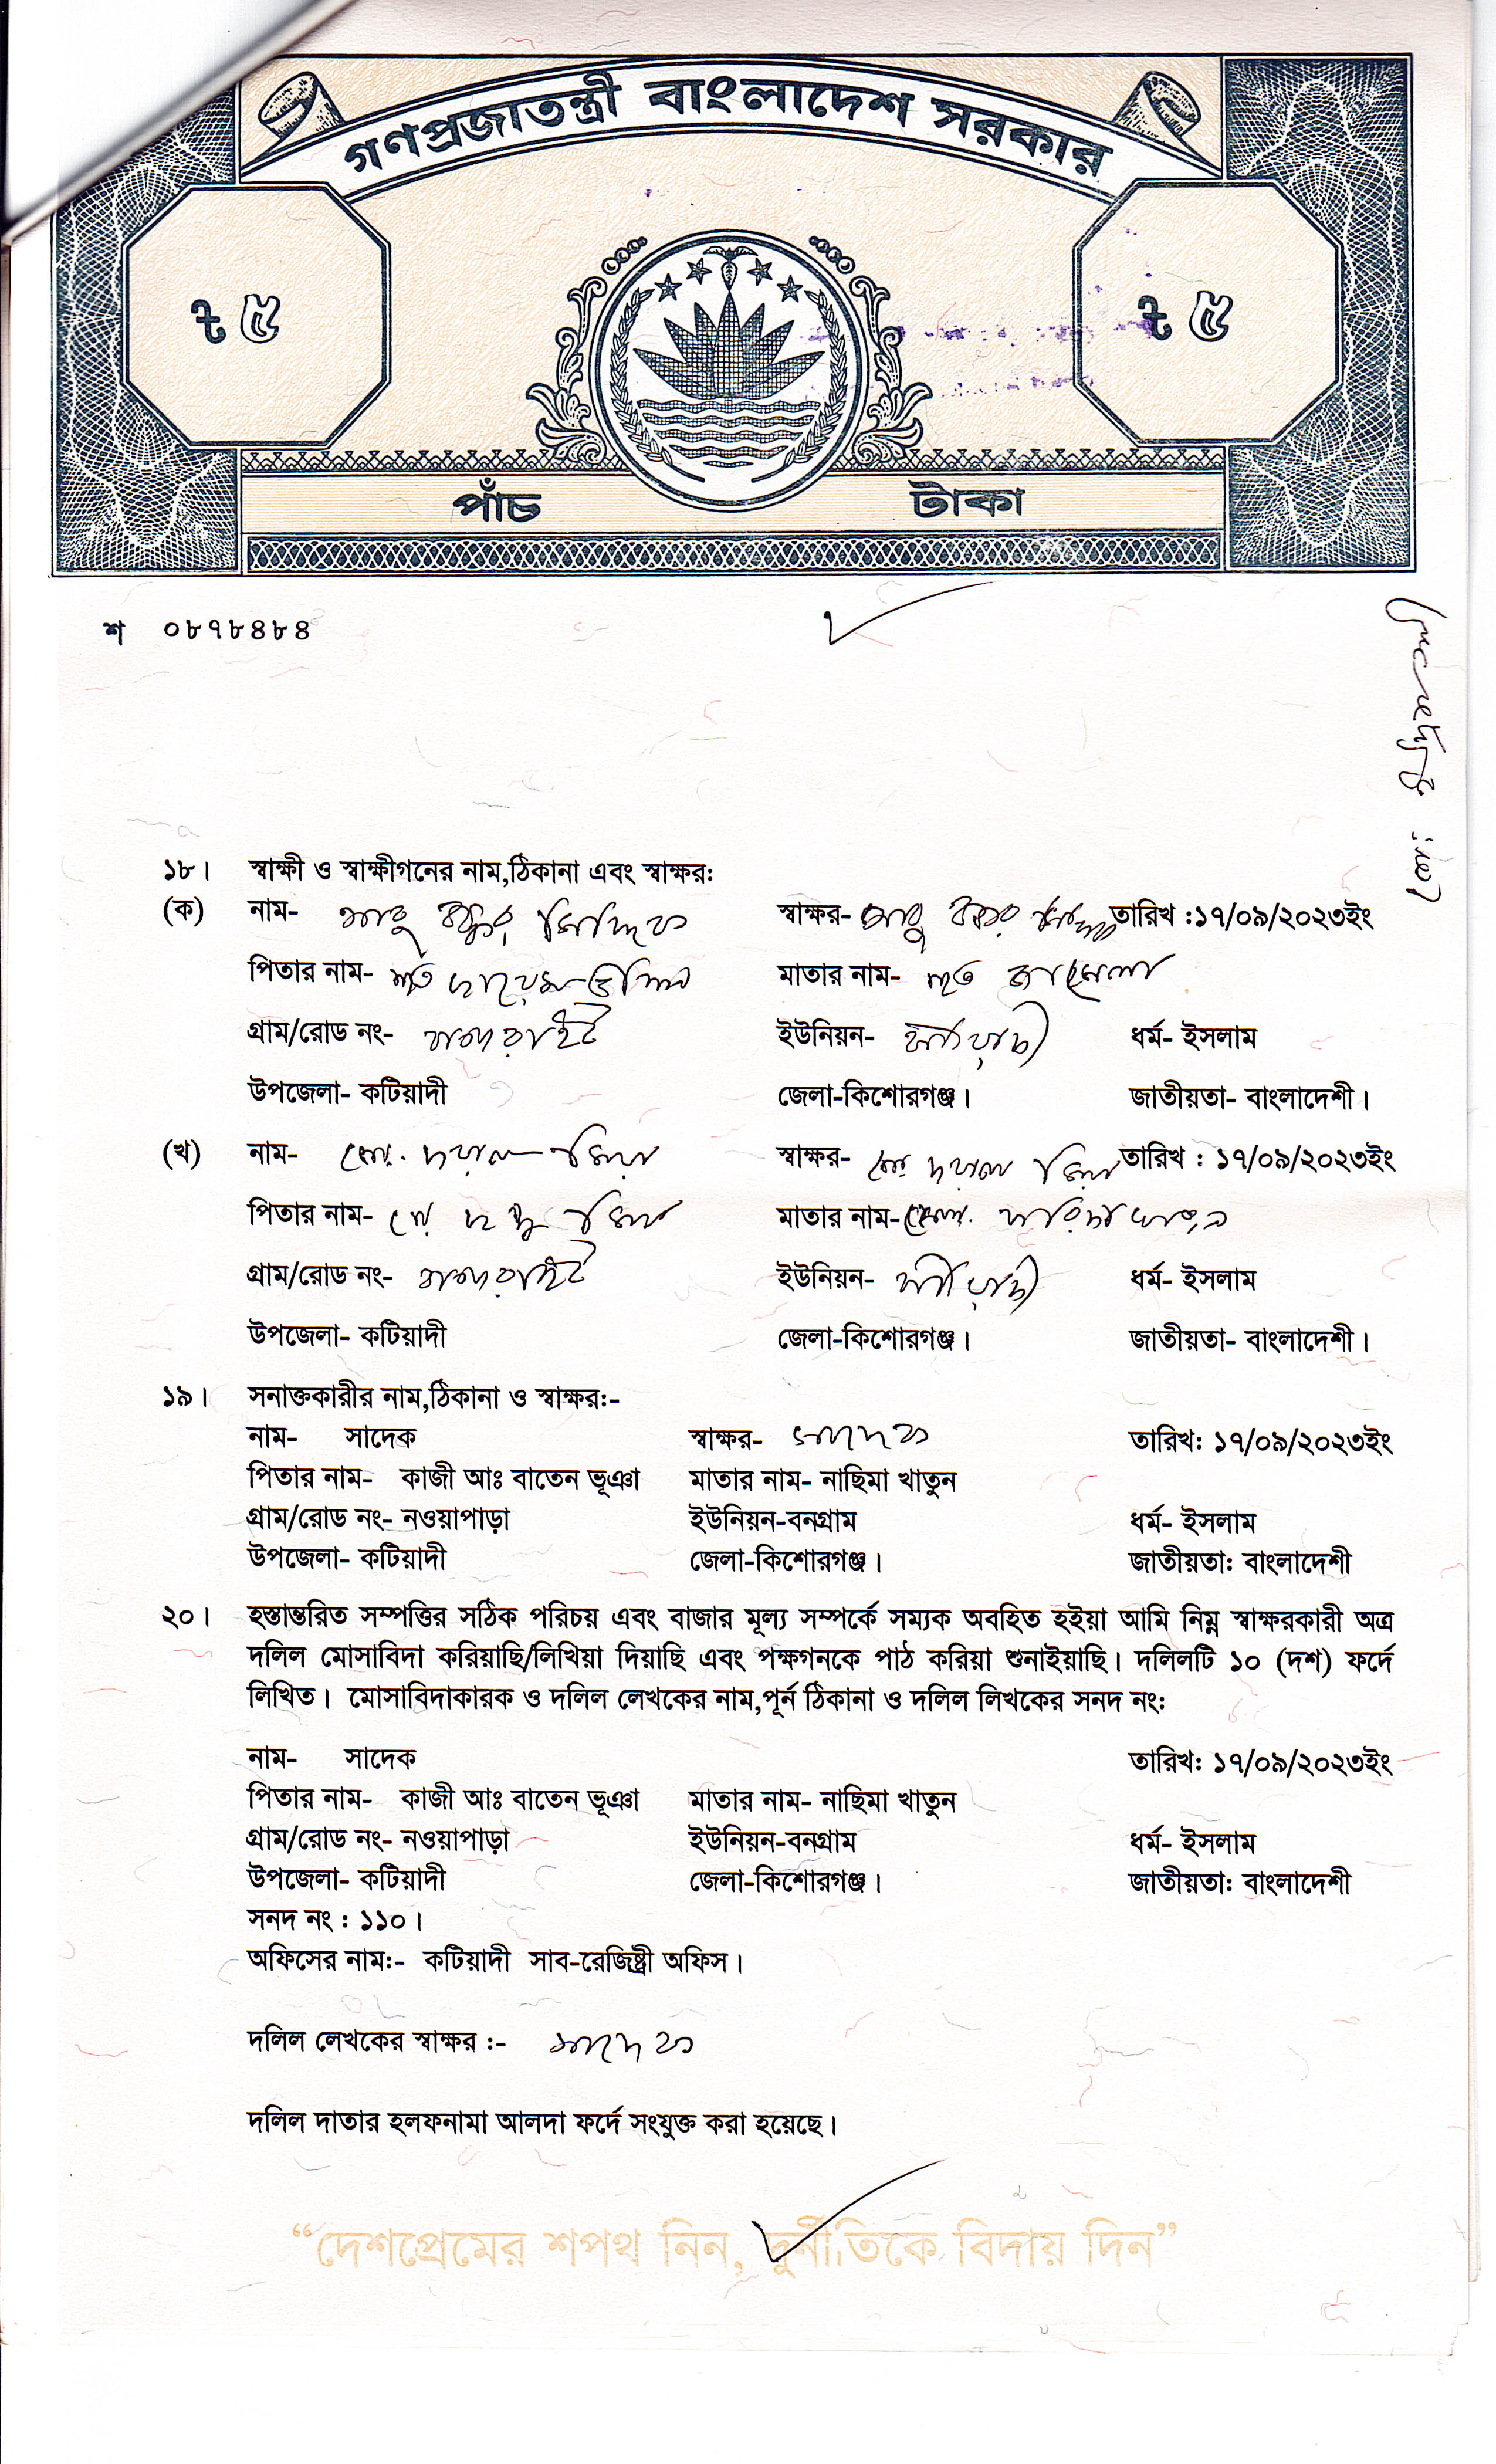 গণপ্রজাতন্ত্রী বাংলাদেশ সরকার
৳ ৫ ৳ ৫
পাঁচ টাকা
শ ০৮৭৮৪৮৪
১৮। স্বাক্ষী ও স্বাক্ষীগনের নাম,ঠিকানা এবং স্বাক্ষর:
(ক) নাম- আবু বক্কর ছিদ্দিক স্বাক্ষর- আবু বক্কর ছিদ্দিক তারিখ :১৭/০৯/২০২৩ইং
পিতার নাম- মৃত মাতার নাম- মৃত
গ্রাম/রোড নং- ইউনিয়ন- ধর্ম- ইসলাম
উপজেলা- কটিয়াদী জেলা-কিশোরগঞ্জ। জাতীয়তা- বাংলাদেশী।
(খ) নাম- মোঃ দয়াল মিয়া স্বাক্ষর- মোঃ দয়াল মিয়া তারিখ : ১৭/০৯/২০২৩ইং
পিতার নাম- মোঃ মিয়া মাতার নাম- মোছাঃ
গ্রাম/রোড নং- ইউনিয়ন- ধর্ম- ইসলাম
উপজেলা- কটিয়াদী জেলা-কিশোরগঞ্জ। জাতীয়তা- বাংলাদেশী।
১৯। সনাক্তকারীর নাম,ঠিকানা ও স্বাক্ষর:-
নাম- সাদেক স্বাক্ষর- সাদেক তারিখ: ১৭/০৯/২০২৩ইং
পিতার নাম- কাজী আঃ বাতেন ভূঞা মাতার নাম- নাছিমা খাতুন
গ্রাম/রোড নং- নওয়াপাড়া ইউনিয়ন-বনগ্রাম ধর্ম- ইসলাম
উপজেলা- কটিয়াদী জেলা-কিশোরগঞ্জ। জাতীয়তা: বাংলাদেশী
২০। হস্তান্তরিত সম্পত্তির সঠিক পরিচয় এবং বাজার মূল্য সম্পর্কে সম্যক অবহিত হইয়া আমি নিম্ন স্বাক্ষরকারী অত্র
দলিল মোসাবিদা করিয়াছি/লিখিয়া দিয়াছি এবং পক্ষগনকে পাঠ করিয়া শুনাইয়াছি। দলিলটি ১০ (দশ) ফর্দে
লিখিত। মোসাবিদাকারক ও দলিল লেখকের নাম,পূর্ন ঠিকানা ও দলিল লিখকের সনদ নং:
নাম- সাদেক তারিখ: ১৭/০৯/২০২৩ইং
পিতার নাম- কাজী আঃ বাতেন ভূঞা মাতার নাম- নাছিমা খাতুন
গ্রাম/রোড নং- নওয়াপাড়া ইউনিয়ন-বনগ্রাম ধর্ম- ইসলাম
উপজেলা- কটিয়াদী জেলা-কিশোরগঞ্জ। জাতীয়তা: বাংলাদেশী
সনদ নং : ১১০।
অফিসের নাম:- কটিয়াদী সাব-রেজিষ্ট্রী অফিস।
দলিল লেখকের স্বাক্ষর :- সাদেক
দলিল দাতার হলফনামা আলদা ফর্দে সংযুক্ত করা হয়েছে।
“দেশপ্রেমের শপথ নিন, দুর্নীতিকে বিদায় দিন”